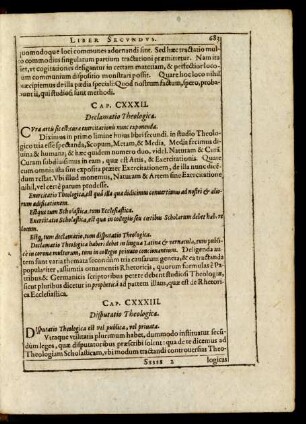 LIBER SECUNDUS. 683
quomodoque loci communes adornandi sint. Sed hæc tractatio mul-
to commodius singularum partium tractationi præmittetur. Nam ita
fiet, ut cogitationes desigantur in certam materiam, & perfectior loco-
rum communium dispositio monstrari possit. Quare hoc loco nihil
præcipimus de illa pædia speciali: Quod nostrum factum, spero, proba-
bunt ii, qui studiosi sunt methodi.
CAP. CXXXII.
Declamatio Theologica.
CUra artis sic est: cura exercitationis nunc exponenda.
Diximus in primo limine huius libri secundi, in studio Theolo-
gico tria esse spectanda, Scopum, Metam, & Media. Media fecimus di-
vina & humana; & hæc quidem numero duo, videl. Naturam & Curã
Curam subdivisimus in eam, quæ est Artis, & Exercitationis. Quare
cum omnis illa sint exposita præter Exercitationem, de illa nunc dicen-
dum restat. Ubi illud monemus, Naturam & Artem sine Exercitatione
nihil, vel certè parum prodesse.
Exercitatio Theologica, est qua illa qua didicimus convertimus ad nostri & alio-
rum ædificationem.
Estque tum Scholastica, tum Ecclesiastica.
Exercitatio Scholastica, est qua in collegiis seu cœtibus Scholarum debet haberi
Estq, tum declamatio, tum disputatio Theologica.
Declamatio Theologica haberi debet in lingua Latina & vernacula, tum publi-
cè in corona multorum, tum in collegio privato concionantium. Deligenda au-
tem sunt varia themata secundum tria causarum genera; & ea tractanda
populariter, assumtis ornamentis Rhetoricis, quorum formulas è Pa-
tribus & Germanicis scriptoribus petere debent studiosi Theologiæ,
sicut pluribus dicetur in προθεωρίᾳ ad partem illam, quæ est de Rheto-
rica Ecclesiastica.
CAP. CXXXIII.
Disputatio Theologica.
DIsputatio Theologica est vel publica, vel privata.
Utraque utilitatis plurimum habet, dummodo instituatur secun-
dùm leges, quæ disputatoribus præscribi solent: qua de re dicemus ad
Theologiam Scholasticam, ubi modum tractandi controversias Theo-
Ssss 2 logicas